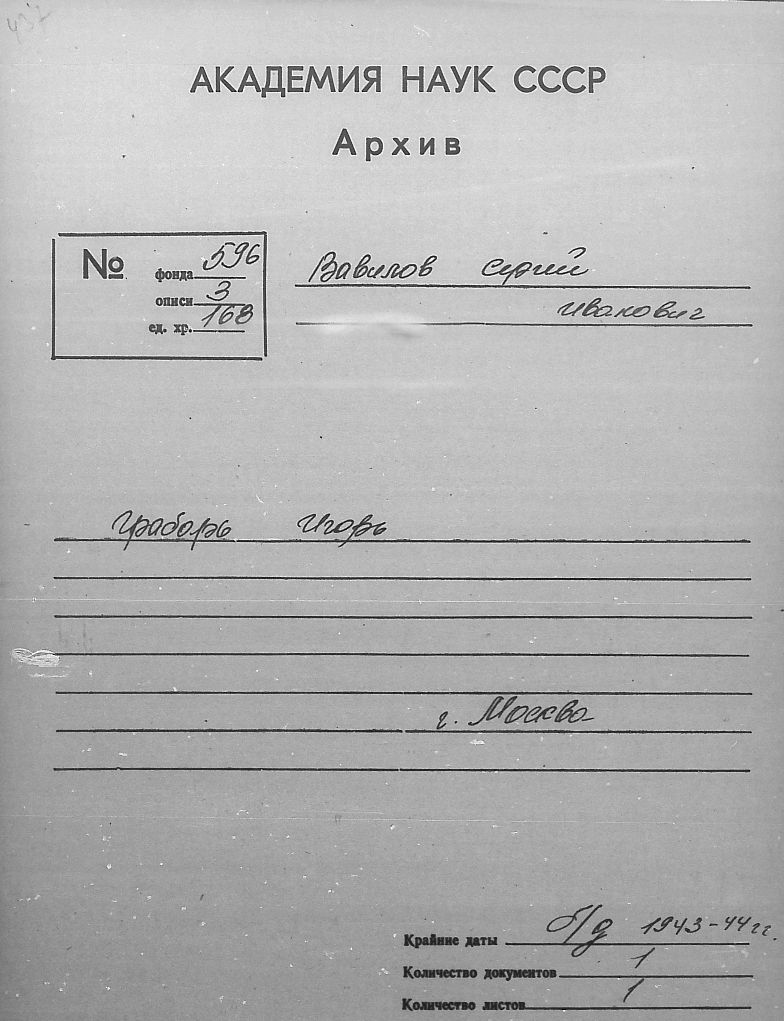 437
АКАДЕМИЯ НАУК СССР
Архив
№
фонда 596
описи 3
ед. хр. 168
Вавилов Сергей
Иванович
Грабарь Игорь
г. Москва
Крайние даты б/д 1943-44 гг.
Количество документов 1
Количество листов 1